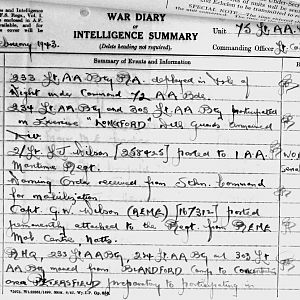 WAR DIARY
or
INTELLIGENCE SUMMARY
(Delete heading not required).
and Intelligence
F.S. Regs., Vol I.
Unit 73 Lt. AA.
Commanding Officer Lt. Co
1943.
Summary of Events and Information
233 Lt. AA Btg R/A deployed in role of
Night under Command 72 AA Bde.
234 Lt AA Btg and 303 Lt AA Btg participated
in Exercise "LONGFORD" with Guards Armoured
Div.
2/Lt. J Wilson [258425] posted to 1 AA.
Maritime Regt.
Warning Order received from Command
for mobilisation
Capt. G.W. Wilson (REME) posted
permanently attached to the Regt. from REME
Mob Centre Notts.
RHQ, 233 Lt AA Btg, 234 Lt AA Btg and 303 Lt
AA Btg moved from BLANDFORD Camp to Concentration
area preparatory to participating in